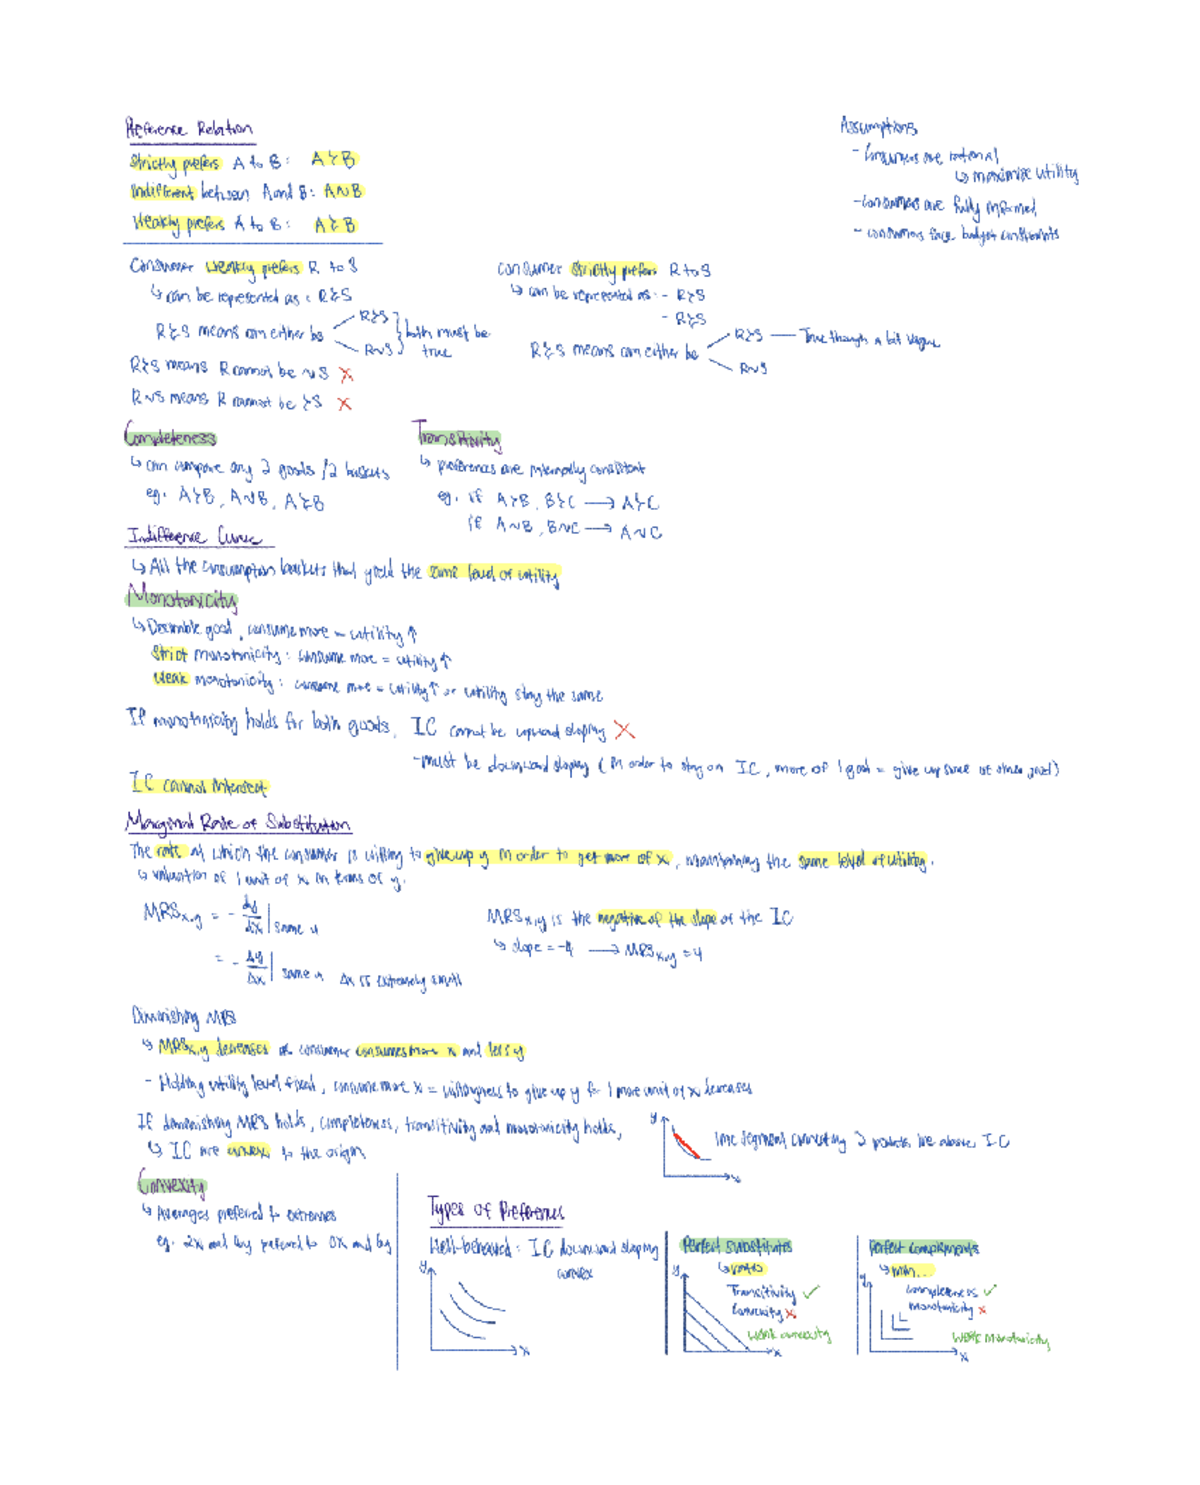 Preference Relation
Strictly prefers A to B: A≻B
Indifferent between A and B: A∼B
Weakly prefers A to B: A≽B
Assumptions
- Consumers are rational
↳ maximize utility
- consumers are fully informed
- consumers face budget constraints
Consumer weakly prefers R to S
↳ can be represented as: R≽S
R≽S means can either be
R≻S
R∼S
both must be true
R≻S means R cannot be ∼S ✗
R∼S means R cannot be ≻S ✗
Consumer strictly prefers R to S
↳ can be represented as: - R≻S
- R≽S
R≽S means can either be
R≻S — True though a bit vague
R∼S
Completeness
↳ can compare any 2 goods / 2 baskets
eg. A≻B, A∼B, A≽B
Transitivity
↳ preferences are internally consistent
eg. if A≻B, B≻C → A≻C
if A∼B, B∼C → A∼C
Indifference Curve
↳ All the consumption baskets that yield the same level of utility
Monotonicity
↳ Desirable good, consume more = utility ↑
Strict monotonicity: consume more = utility ↑
Weak monotonicity: consume more = utility ↑ or utility stay the same
If monotonicity holds for both goods, IC cannot be upward sloping ✗
- must be downward sloping (in order to stay on IC, more of 1 good = give up some of other good)
IC cannot intersect
Marginal Rate of Substitution
The rate at which the consumer is willing to give up y in order to get more of x, maintaining the same level of utility.
↳ valuation of 1 unit of x in terms of y.
MRSx,y = - dy/dx | same u
= - Δy/Δx | same u Δx is extremely small
MRSx,y is the negative of the slope of the IC
↳ slope = -4 → MRSx,y = 4
Diminishing MRS
↳ MRSx,y decreases as consumer consumes more x and less y
- Holding utility level fixed, consume more x = willingness to give up y for 1 more unit of x decreases
If diminishing MRS holds, completeness, transitivity and monotonicity holds,
↳ IC are convex to the origin
y
x
line segment connecting 2 points lie above IC
Convexity
↳ Averages preferred to extremes
eg. 2x and 4y preferred to 0x and 6y
Types of Preferences
Well-behaved: IC downward sloping
convex
y
x
Perfect substitutes
y
Transitivity ✓
Convexity ✗
Weak convexity
x
Perfect complements
↳ min...
y
completeness ✓
monotonicity ✗
Weak monotonicity
x